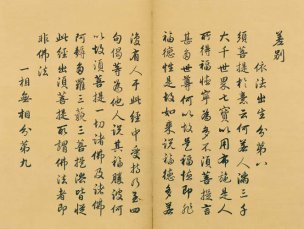 差別
依法出生分第八
須菩提於意云何若人滿三千
大千世界七寶以用布施是人
所得福德寧為多不須菩提言
甚多世尊何以故是福德即非
福德性是故如來說福德多若
復有人於此經中受持乃至四
句偈等為他人說其福勝彼何
以故須菩提一切諸佛及諸佛
阿耨多羅三藐三菩提法皆從
此經出須菩提所謂佛法者即
非佛法
一相無相分第九